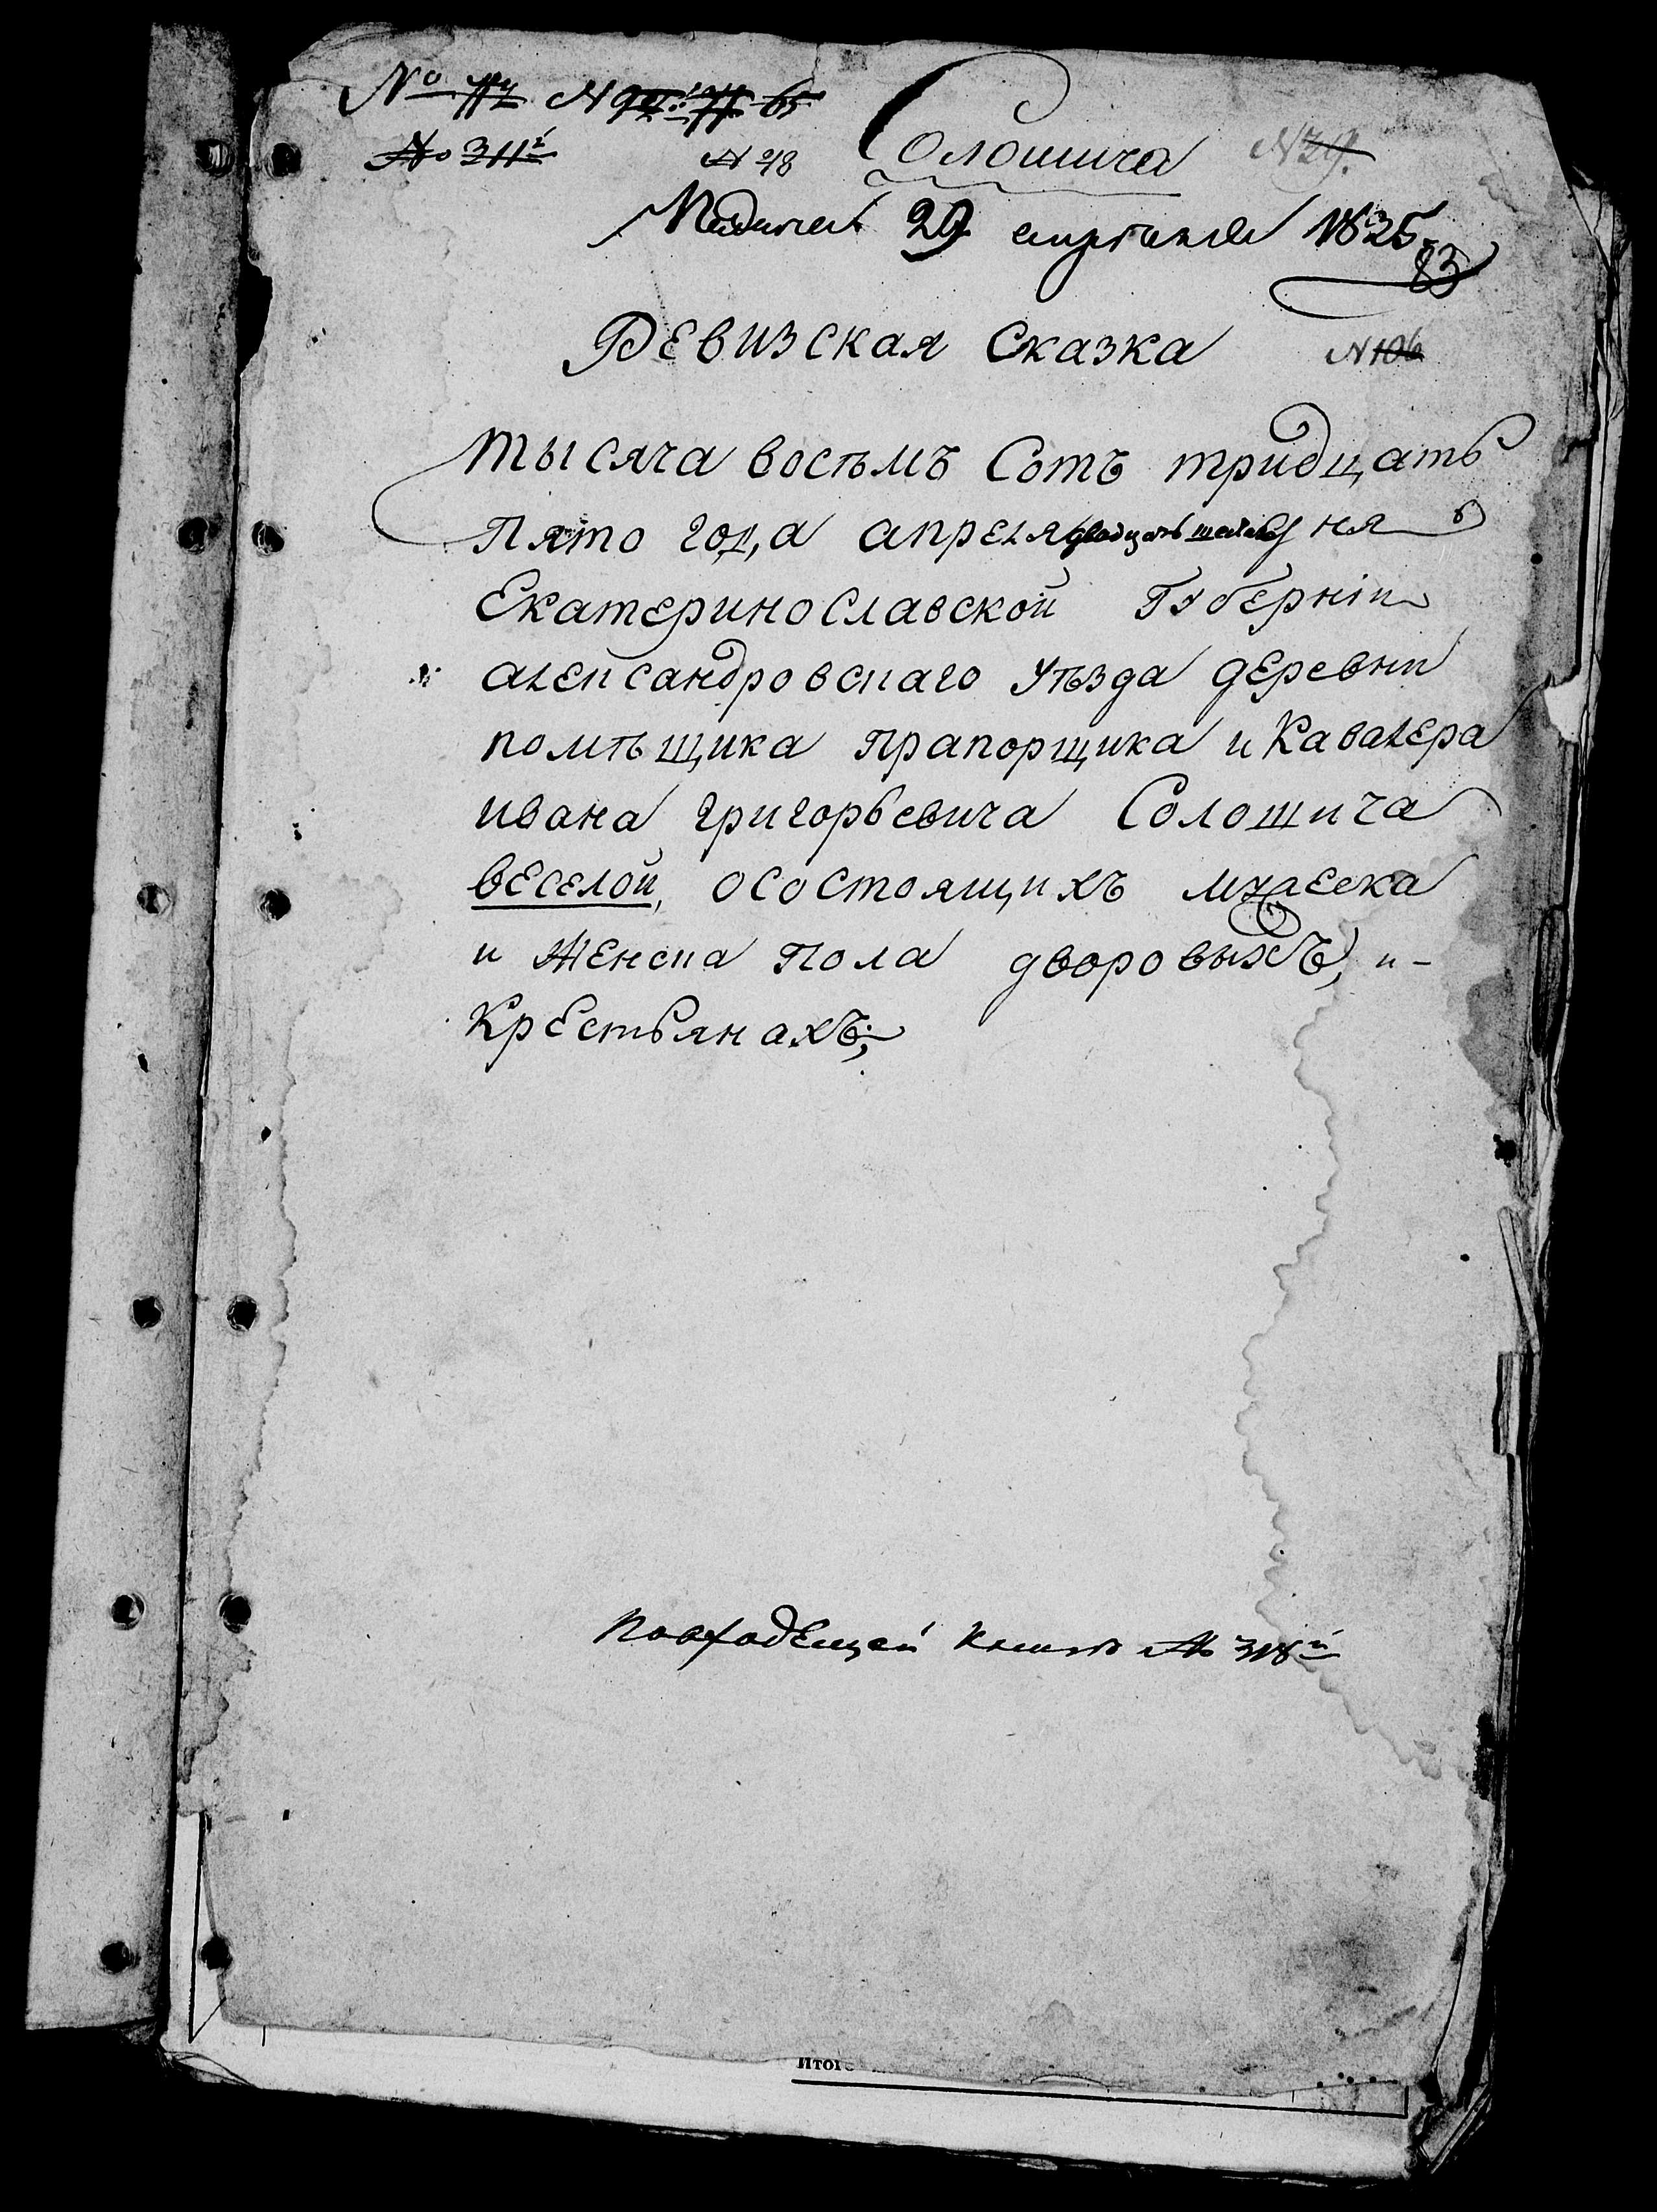 № 311й
№ 98 Солошича № 29.
Подана 29 апреля 1835
83
РЕВИЗСКая Сказка № 106
тысяча восѣмъ Сотъ тридцать
Пято года апреля двадцать шестаго дня
Екатеринославской Губерніи
алепсандровспаго Уѣзда деревни
помѣщика прапорщика и Кавалера
ивана григорьевича Солошича
веселой, осостоящихъ мужеска
и Женспа Пола дворовыхъ, и -
Крестьянахъ;
Повходещей Книги № 318й
итого